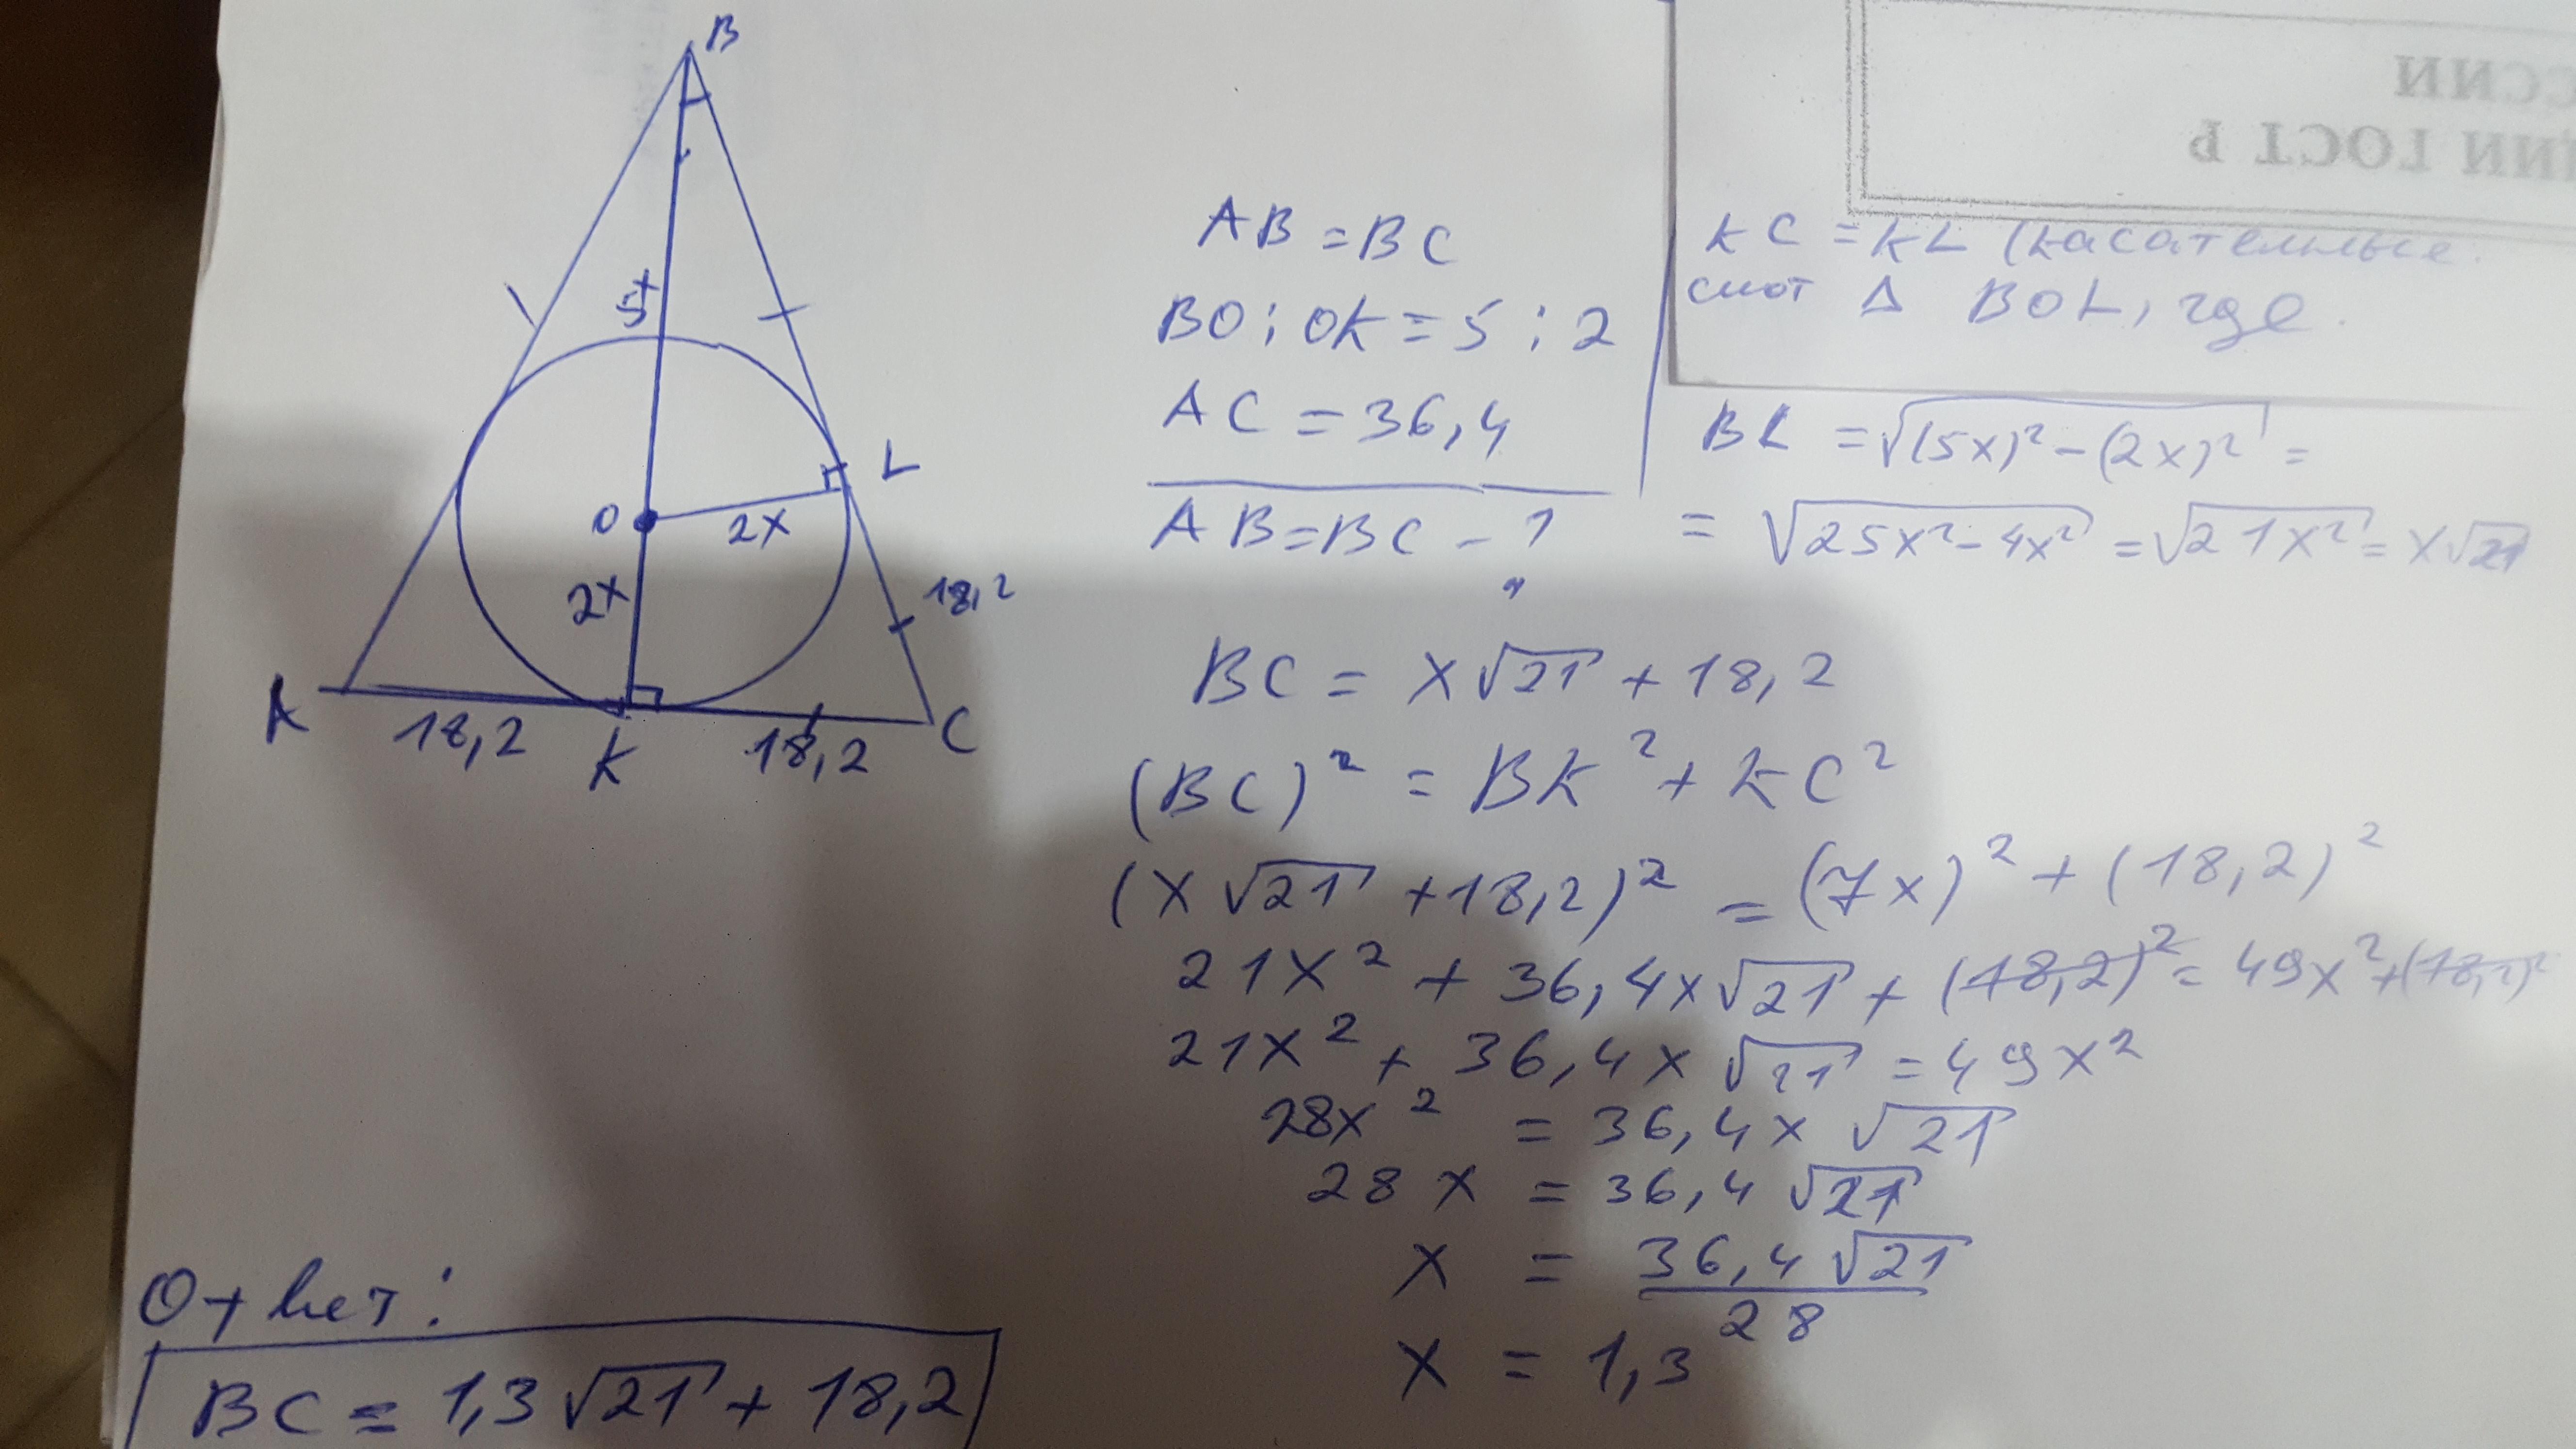 B
5x
L
O
2x
2x
18,2
A
18,2
K
18,2
C
AB = BC
BO : OK = 5 : 2
AC = 36,4
AB = BC - ?
KC = KL (касательные
смот Δ BOL, где
BL = √((5x)² - (2x)²) =
= √(25x² - 4x²) = √(21x²) = x√21
BC = x√21 + 18,2
(BC)² = BK² + KC²
(x√21 + 18,2)² = (7x)² + (18,2)²
21x² + 36,4x√21 + (18,2)² = 49x² + (18,2)²
21x² + 36,4x√21 = 49x²
28x² = 36,4x√21
28x = 36,4√21
x = 36,4√21 / 28
x = 1,3
Ответ:
BC = 1,3√21 + 18,2
ССИИ
ННОСТЬ